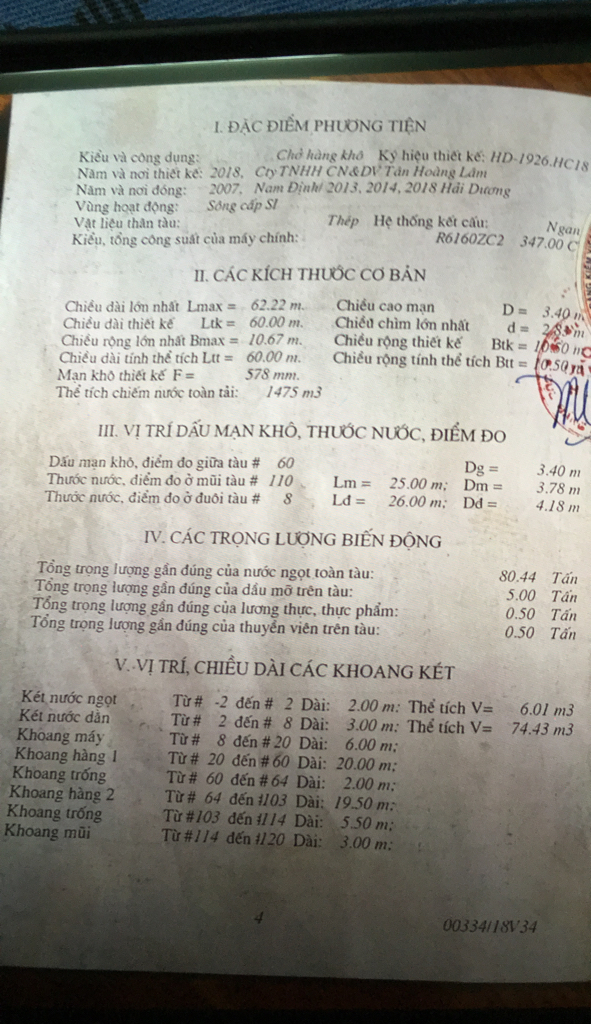 I. ĐẶC ĐIỂM PHƯƠNG TIỆN
Kiểu và công dụng: Chở hàng khô Ký hiệu thiết kế: HD-1926.HC18
Năm và nơi thiết kế: 2018, Cty TNHH CN&DV Tân Hoàng Lâm
Năm và nơi đóng: 2007, Nam Định/ 2013, 2014, 2018 Hải Dương
Vùng hoạt động: Sông cấp SI
Vật liệu thân tàu: Thép Hệ thống kết cấu: Ngan
Kiểu, tổng công suất của máy chính: R6160ZC2 347.00 C
II. CÁC KÍCH THƯỚC CƠ BẢN
Chiều dài lớn nhất Lmax = 62.22 m. Chiều cao mạn D = 3.40 m
Chiều dài thiết kế Ltk = 60.00 m. Chiều chìm lớn nhất d = m
Chiều rộng lớn nhất Bmax = 10.67 m. Chiều rộng thiết kế Btk = 10.50 m
Chiều dài tính thể tích Ltt = 60.00 m. Chiều rộng tính thể tích Btt = 10.50 m
Mạn khô thiết kế F = 578 mm.
Thể tích chiếm nước toàn tải: 1475 m3
III. VỊ TRÍ DẤU MẠN KHÔ, THƯỚC NƯỚC, ĐIỂM ĐO
Dấu mạn khô, điểm đo giữa tàu # 60 Dg = 3.40 m
Thước nước, điểm đo ở mũi tàu # 110 Lm = 25.00 m; Dm = 3.78 m
Thước nước, điểm đo ở đuôi tàu # 8 Lđ = 26.00 m; Dđ = 4.18 m
IV. CÁC TRỌNG LƯỢNG BIẾN ĐỘNG
Tổng trọng lượng gần đúng của nước ngọt toàn tàu: 80.44 Tấn
Tổng trọng lượng gần đúng của dầu mỡ trên tàu: 5.00 Tấn
Tổng trọng lượng gần đúng của lương thực, thực phẩm: 0.50 Tấn
Tổng trọng lượng gần đúng của thuyền viên trên tàu: 0.50 Tấn
V. VỊ TRÍ, CHIỀU DÀI CÁC KHOANG KÉT
Két nước ngọt Từ # -2 đến # 2 Dài: 2.00 m; Thể tích V= 6.01 m3
Két nước dằn Từ # 2 đến # 8 Dài: 3.00 m; Thể tích V= 74.43 m3
Khoang máy Từ # 8 đến # 20 Dài: 6.00 m;
Khoang hàng 1 Từ # 20 đến # 60 Dài: 20.00 m;
Khoang trống Từ # 60 đến # 64 Dài: 2.00 m;
Khoang hàng 2 Từ # 64 đến #103 Dài: 19.50 m;
Khoang trống Từ #103 đến #114 Dài: 5.50 m;
Khoang mũi Từ #114 đến #120 Dài: 3.00 m;
4
00334/18V34